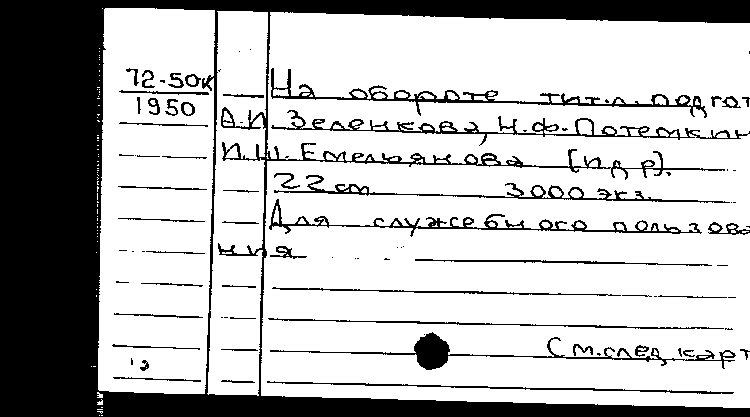 72-50к
1950
На обороте тит.л. подгот
А.И. Зеленкова, Н.Ф. Потемкин
И.Ш. Емельянова [и др].
22 cm 3000 экз.
Для служебного пользова
ния
См. след. карт